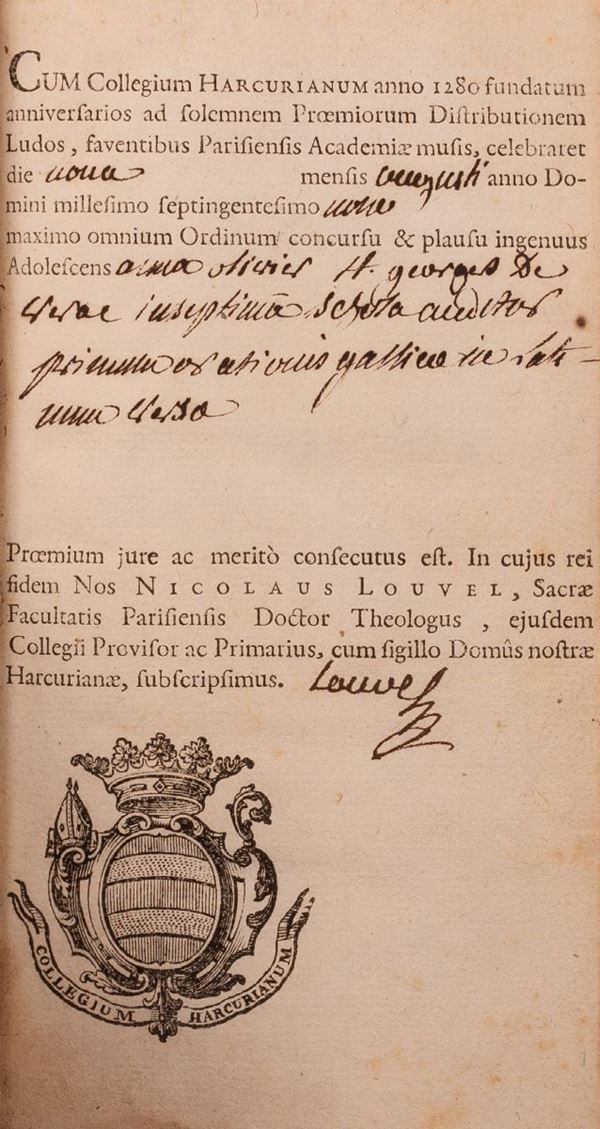 CUM Collegium HARCURIANUM anno 1280 fundatum
anniverſarios ad ſolemnem Prœmiorum Diſtributionem
Ludos, faventibus Pariſienſis Academiæ muſis, celebraret
die nona menſis augusti anno Do-
mini milleſimo ſeptingenteſimo nono
maximo omnium Ordinum concurſu & plauſu ingenuus
Adoleſcens olivier st. georges De
verac in septimâ schola auditor
primum orationis gallicæ in Lati-
num versæ
Prœmium jure ac meritò conſecutus eſt. In cujus rei
fidem Nos NICOLAUS LOUVEL, Sacræ
Facultatis Pariſienſis Doctor Theologus, ejuſdem
Collegii Proviſor ac Primarius, cum ſigillo Domûs noſtræ
Harcurianæ, ſubſcripſimus. Louvel
COLLEGIUM HARCURIANUM